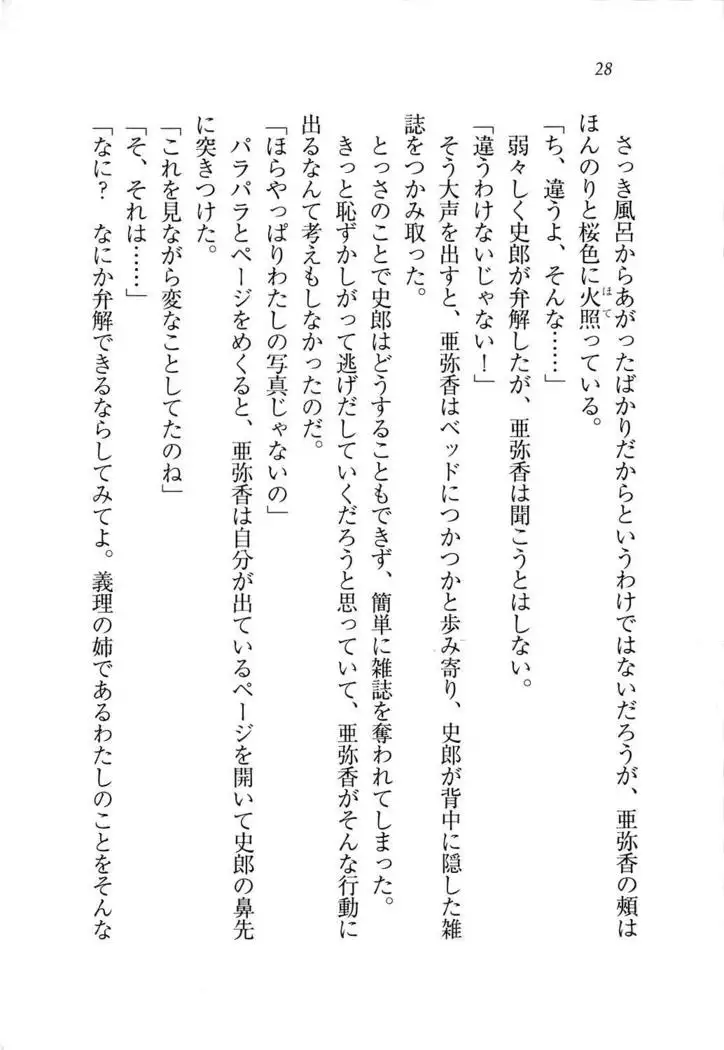 28
さっき風呂からあがったばかりだからというわけではないだろうが、亜弥香の頬は
ほんのりと桜色に火照っている。
ほて
「ち、違うよ、そんな……」
弱々しく史郎が弁解したが、亜弥香は聞こうとはしない。
「違うわけないじゃない！」
そう大声を出すと、亜弥香はベッドにつかつかと歩み寄り、史郎が背中に隠した雑
誌をつかみ取った。
とっさのことで史郎はどうすることもできず、簡単に雑誌を奪われてしまった。
きっと恥ずかしがって逃げだしていくだろうと思っていて、亜弥香がそんな行動に
出るなんて考えもしなかったのだ。
「ほらやっぱりわたしの写真じゃないの」
パラパラとページをめくると、亜弥香は自分が出ているページを開いて史郎の鼻先
に突きつけた。
「これを見ながら変なことしてたのね」
「そ、それは……」
「なに？　なにか弁解できるならしてみてよ。義理の姉であるわたしのことをそんな